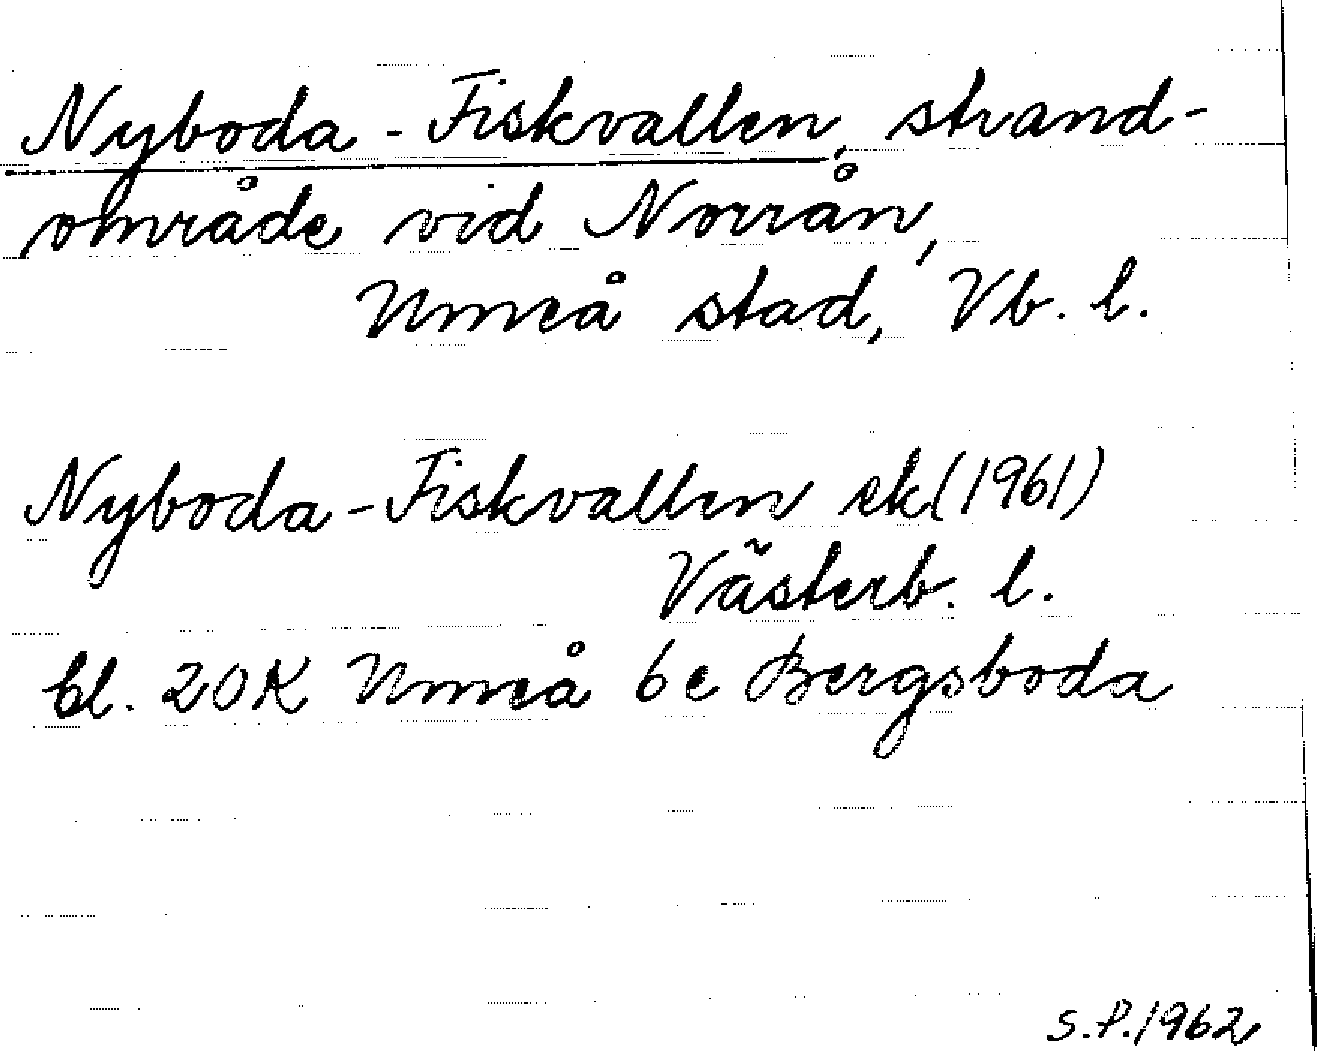 Nyboda - Fiskvallen, strand-
område vid Norrån,
Umeå stad, Vb. l.
Nyboda - Fiskvallen ek (1961)
Västerb. l.
bl. 20K Umeå 6e Bergsboda
S.P. 1962